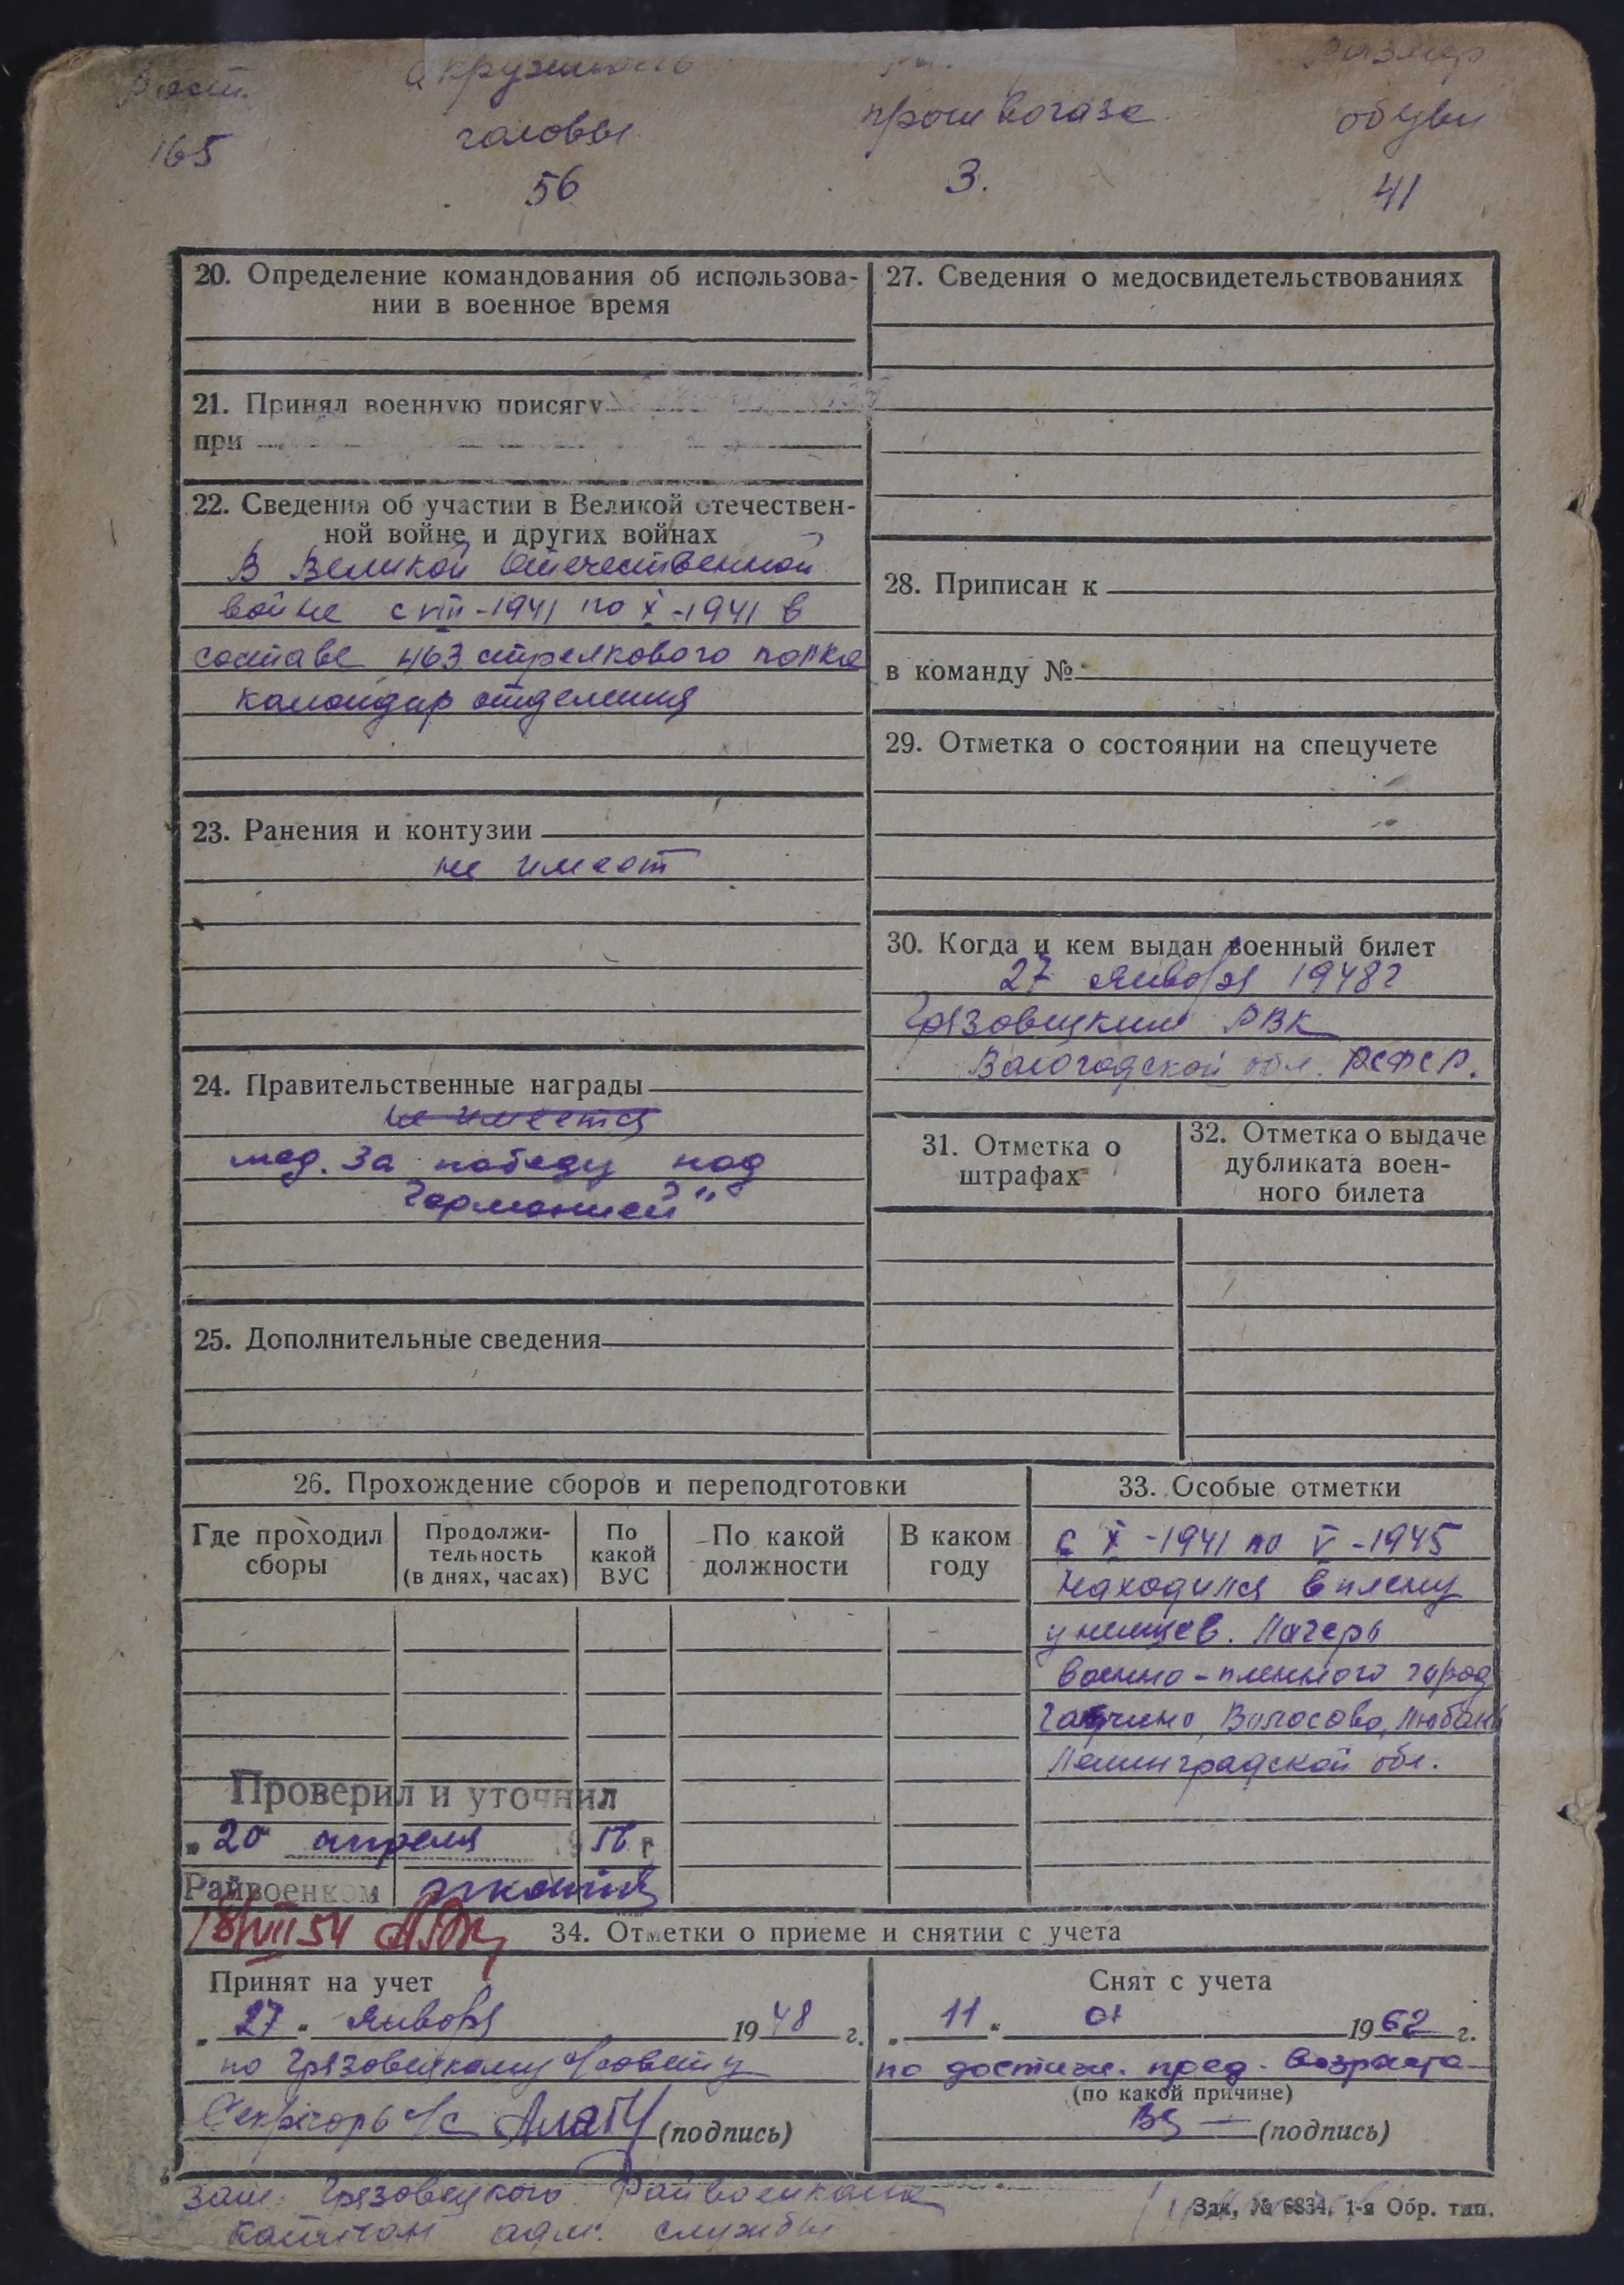 Рост. окружность размер
головы противогаза обуви
165 56 3. 41
20. Определение командования об использова-
нии в военное время
21. Принял военную присягу
при
22. Сведения об участии в Великой отечествен-
ной войне и других войнах
В Великой Отечественной
войне с VIII-1941 по X-1941 в
составе 463 стрелкового полка
командир отделения
23. Ранения и контузии
не имеет
24. Правительственные награды
не имеется
мед. За победу над
Германией"
25. Дополнительные сведения
27. Сведения о медосвидетельствованиях
28. Приписан к
в команду №
29. Отметка о состоянии на спецучете
30. Когда и кем выдан военный билет
27 января 1948г
Грязовецким РВК
Вологодской обл. РСФСР.
31. Отметка о
штрафах
32. Отметка о выдаче
дубликата воен-
ного билета
26. Прохождение сборов и переподготовки
Где проходил
сборы
Продолжи-
тельность
(в днях, часах)
По
какой
ВУС
По какой
должности
В каком
году
Проверил и уточнил
"20" апреля 19 г
Райвоенком
18/VII 54
33. Особые отметки
С X-1941 по V-1945
находился в плену
у немцев. Лагерь
военно-пленного город
Гатчино, Волосово, Любань
Ленинградской обл.
34. Отметки о приеме и снятии с учета
Принят на учет
"27" января 1948 г.
по Грязовецкому с/совету
Секретарь с/с (подпись)
Снят с учета
"11" 01 1962 г.
по достиж. пред. возраста
(по какой причине)
(подпись)
зам. Грязовецкого Райвоенкома
капитан адм. службы
Зак. № 6834. 1-я Обр. тип.